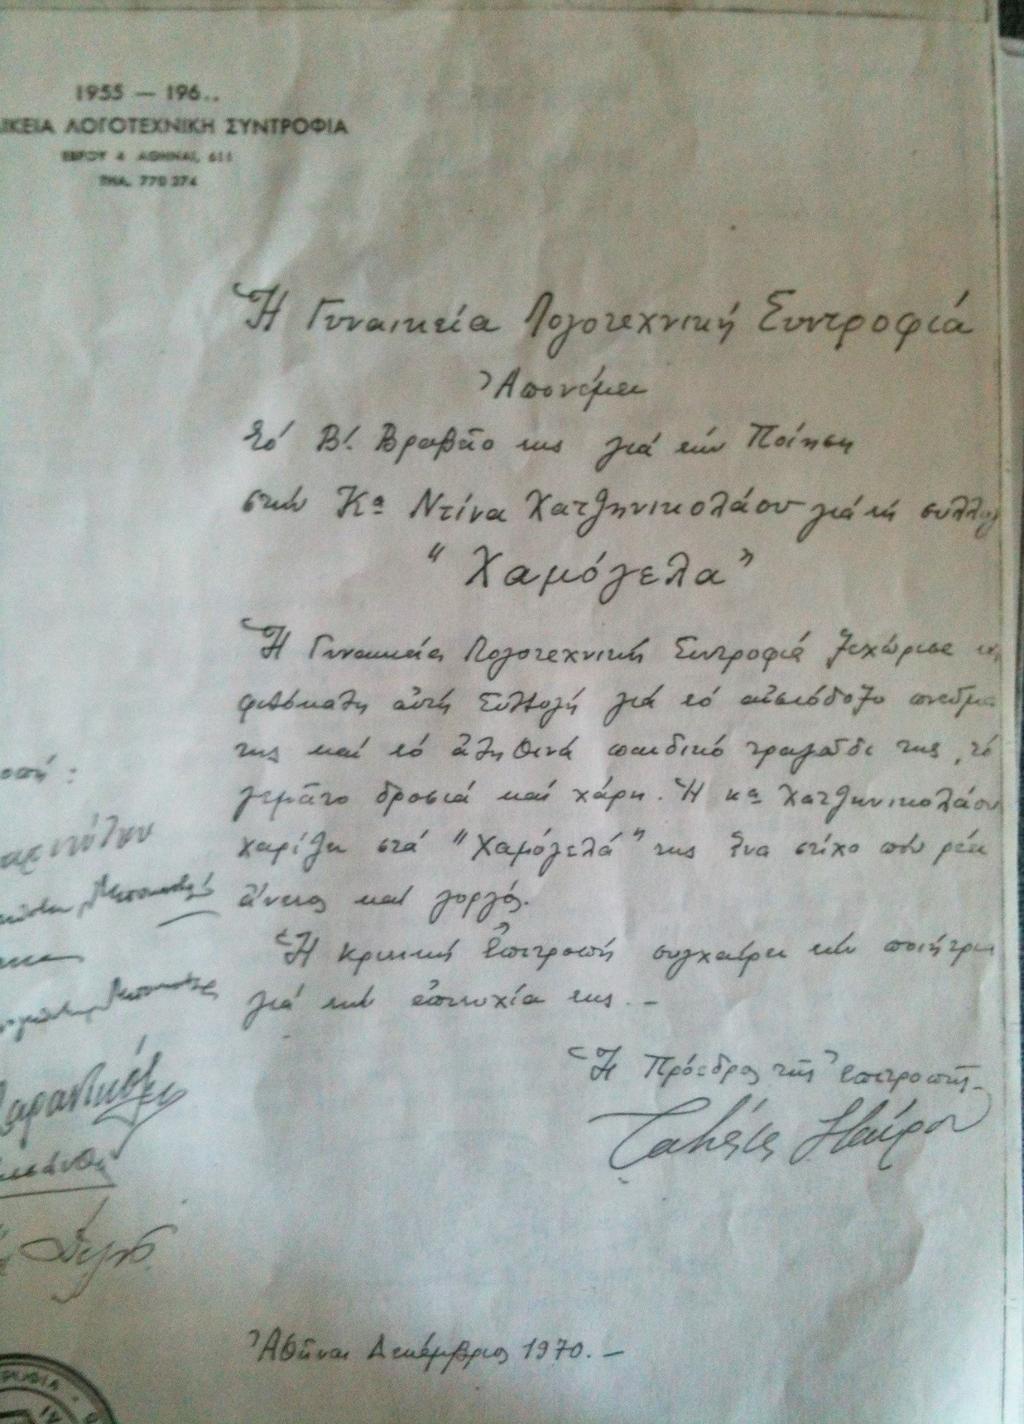 1955 — 196..
ΙΚΕΙΑ ΛΟΓΟΤΕΧΝΙΚΗ ΣΥΝΤΡΟΦΙΑ
ΕΒΡΟΥ 4 ΑΘΗΝΑΙ, 611
ΤΗΛ. 770 274
Ἡ Γυναικεία Λογοτεχνική Συντροφιά
Ἀπονέμει
τό Β΄. Βραβεῖο της γιά τήν Ποίηση
στήν Κα Ντίνα Χατζηνικολάου γιά τή συλλογ
"Χαμόγελα"
Ἡ Γυναικεία Λογοτεχνική Συντροφιά ξεχώρισε τη
αὐτή Συλλογή γιά τό αἰσιόδοξο πνεῦμα
της καί τό ἀληθινά παιδικό τραγοῦδι της, τό
γεμᾶτο δροσιά καί χάρη. Ἡ κα Χατζηνικολάου
χαρίζει στά "Χαμόγελά" της ἕνα στίχο πού ρέει
ἄνετος καί γοργός.
Ἡ κριτική Ἐπιτροπή συγχαίρει τήν ποιήτρια
γιά τήν ἐπιτυχία της. –
Ἡ Πρόεδρος τῆς Ἐπιτροπῆς
Τατιάνα Σταύρου
οπή:
Ἀθῆναι Δεκέμβριος 1970. –